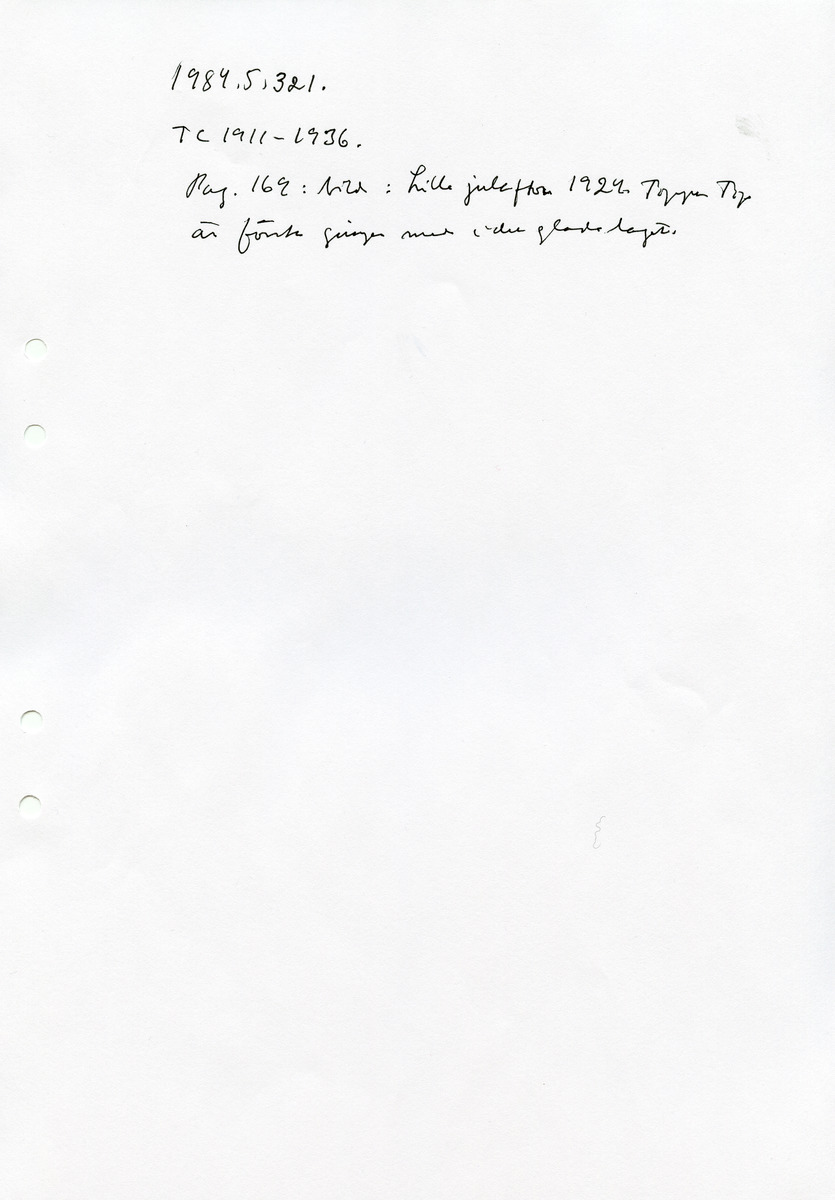 1984.5.321.
TC 1911-1936.
Pag. 169: bild: Lille julafton 1924. Toppen Top
är första gången med i det glada laget.